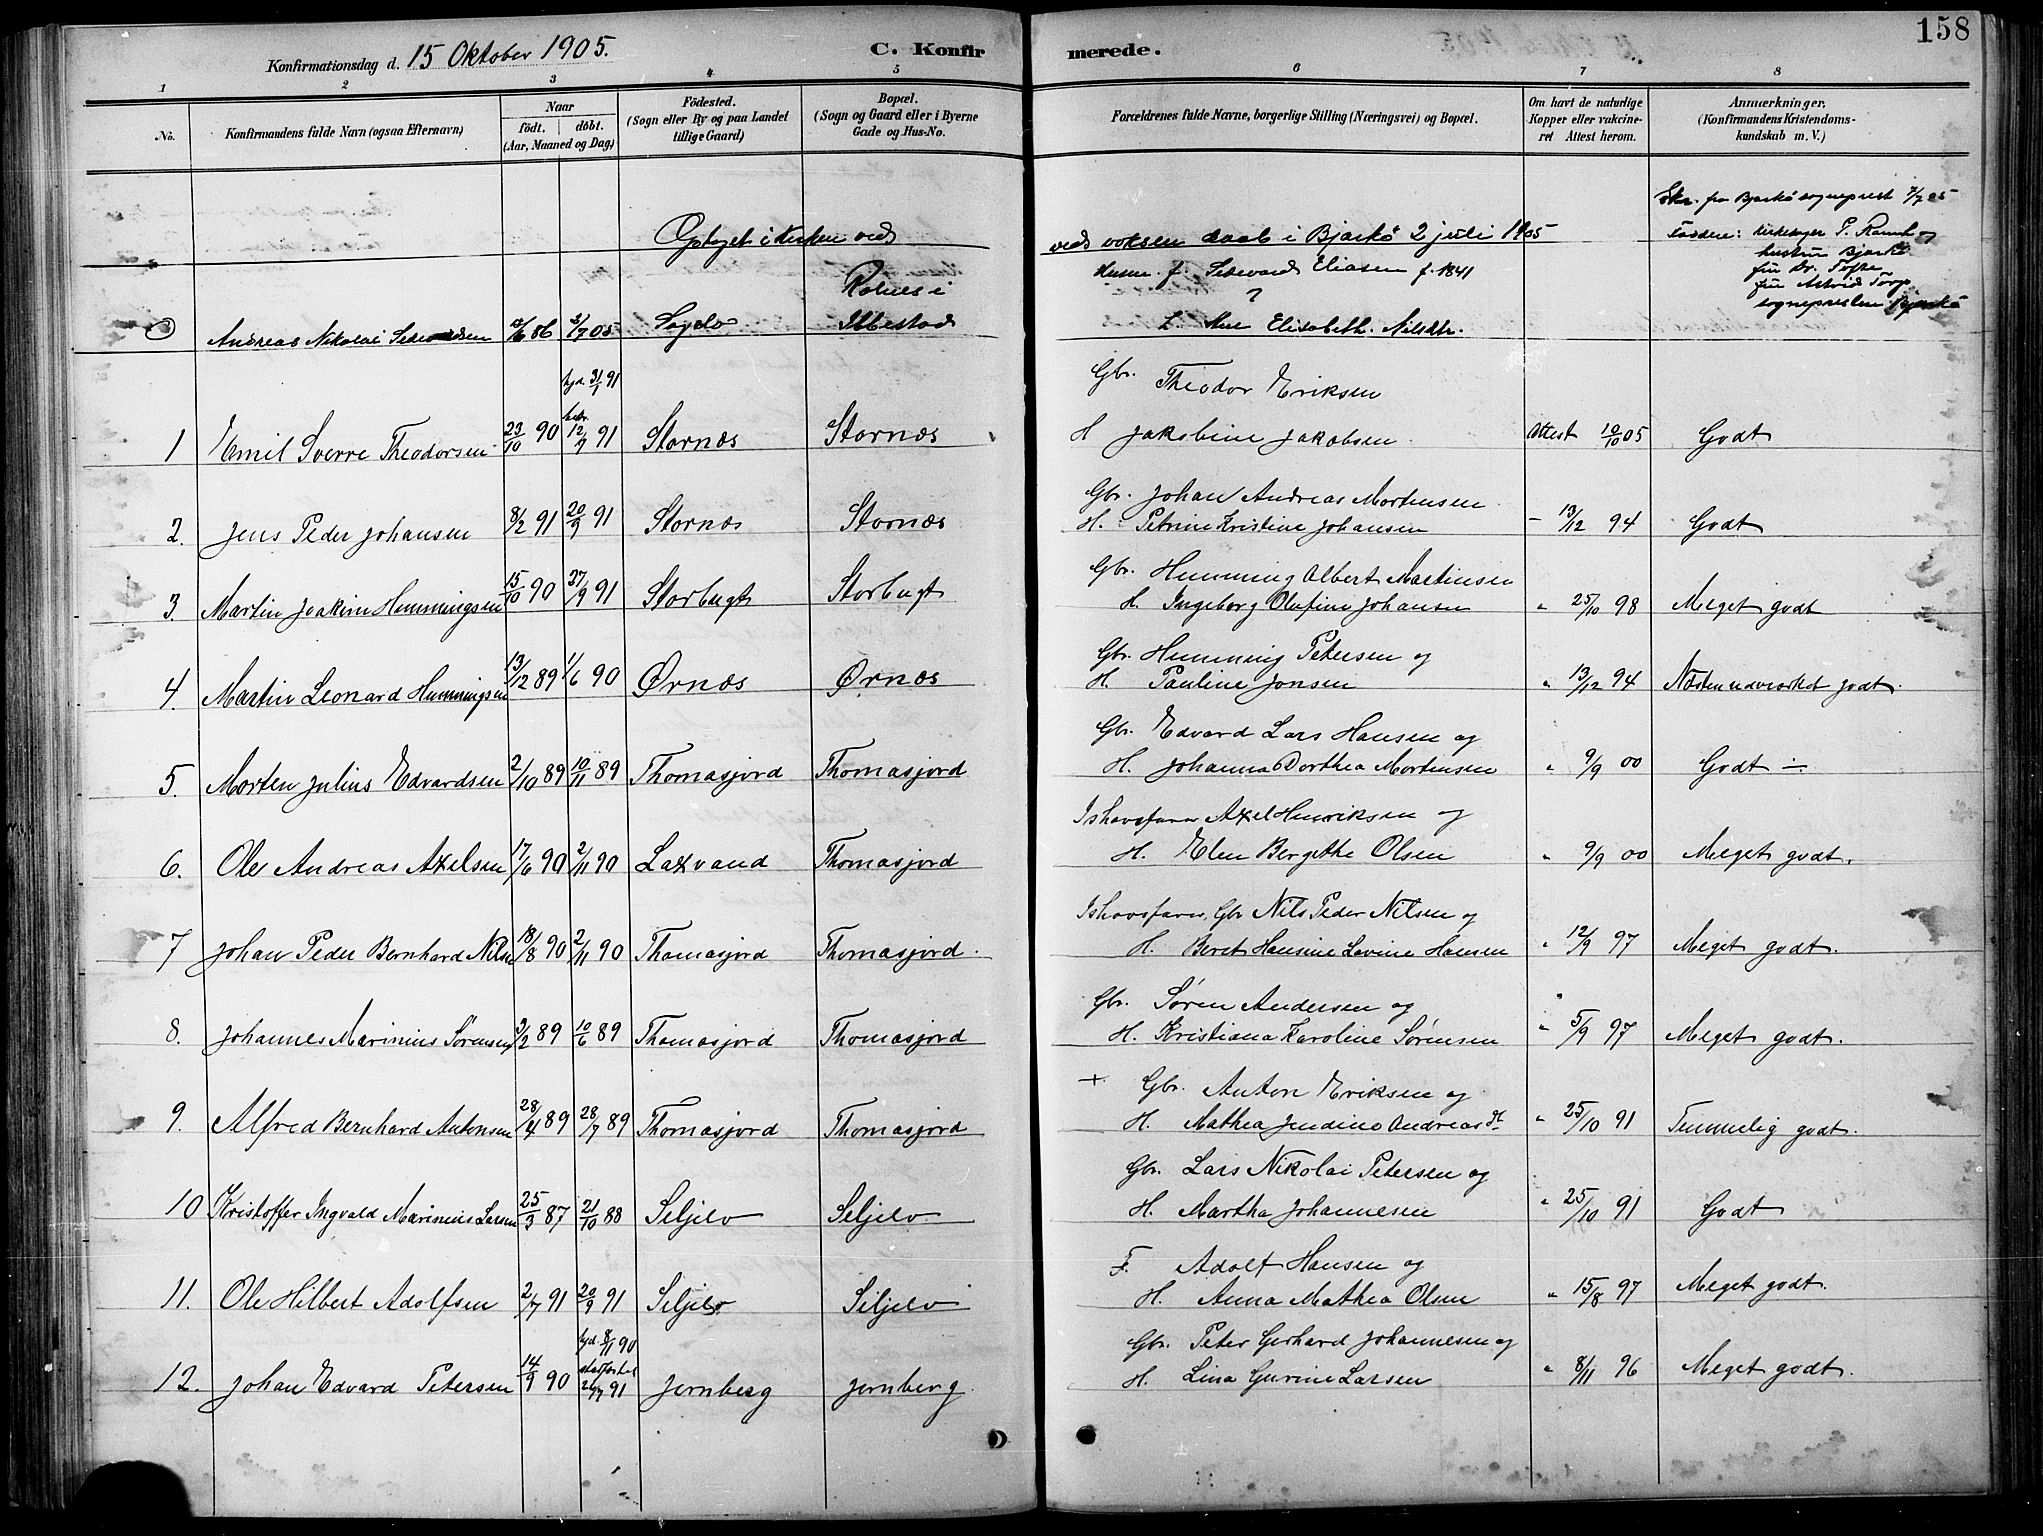 158
Konfirmationsdag d. 15 Oktober 1905.
C. Konfirmerede.
1 2 3 4 5 6 7 8
No.
Konfirmandens fulde Navn (ogsaa Efternavn)
Naar
födt. döbt.
(Aar, Maaned og Dag)
Födested.
(Sogn eller By og paa Landet
tillige Gaard)
Bopæl.
(Sogn og Gaard eller i Byerne
Gade og Hus-No.
Forældrenes fulde Navne, borgerlige Stilling (Næringsvei) og Bopæl.
Om havt de naturlige
Kopper eller vakcine-
ret Attest herom.
Anmærkninger,
(Konfirmandens Kristendoms-
kundskab m. V.)
Optaget i kirken ved
ved voksen daab i Bjarkö 2 juli 1905
Skr. fra Bjarkö sogneprest 7/7 05
Faddere: kirkesanger P.
hustru Bjarkö
fru Dr. Tofte
fru Astrid Torp
sognepresten Bjarkö
Andreas Nikolai 86 2/7 05
Rolnes i
Ibbestad
f. Eliasen f. 1841
?
Elisabeth. Nilsdtr.
1 Emil Sverre Theodorsen 23/10 90 hjd. 31/1 91 bekr. 12/9 91 Stornæs Stornæs
Gbr. Theodor Eriksen
H Jakobine Jakobsen Attest 10/10 05 Godt
2. Jens Peder Johansen 8/2 91 20/9 91 Stornæs Stornæs
Gbr. Johan Andreas Mortensen
H. Petrine Kristine Johansen - 13/12 94 Godt
3. Martin Joakim Hemmingsen 15/10 90 27/9 91 Storbugt Storbugt
Gbr. Hemming Albert Martinsen
H. Ingeborg Olufine Johansen " 25/10 98 Meget godt
4. Martin Leonard Hemmingsen 13/12 89 1/6 90 Ørnæs Ørnæs
Gbr. Hemming Petersen og
H. Pauline Jonsen " 13/12 94 Næsten udmærket godt.
5. Morten Julius Edvardsen 2/10 89 10/11 89 Thomasjord Thomasjord
Gbr. Edvard Lars Hansen og
H. Johanna Dorthea Mortensen " 9/9 00 Godt ÷
6. Ole Andreas Axelsen 17/6 90 2/11 90 Laxvand Thomasjord
Ishavsfarer Axel Henriksen og
H. Elen Bergethe Olsen " 9/9 00 Meget godt.
7 Johan Peder Bernhard Nilsen 18/8 90 2/11 90 Thomasjord Thomasjord.
Ishavsfarer, Gbr Nils Peder Nilsen og
H. Beret Hansine Lovine Hansen " 12/9 97 Meget godt.
8. Johannes Marinius Sørensen 3/2 89 10/6 89 Thomasjord Thomasjord
Gbr. Søren Andersen og
H. Kristiana Karoline Sørensen " 5/9 97 Meget godt.
9. Alfred Bernhard Antonsen 28/4 89 28/7 89 Thomasjord Thomasjord
+. Gbr. Anton Eriksen og
H. Mathea Jendine Andreasdt " 25/10 91 Temmelig godt.
10 Kristoffer Ingvald Marinius Larsen 25/3 87 21/10 88 Seljelv Seljelv
Gbr. Lars Nikolai Petersen og
H. Martha Johannesen " 25/10 91 Godt
11. Ole Hilbert Adolfsen 2/7 91 20/9 91 Seljelv Seljelv
F. Adolf Hansen og
H. Anna Mathea Olsen " 15/8 97 Meget godt.
12. Johan Edvard Petersen 14/9 90 hjd. 8/11 90 stadfæstet 26/7 91 Jernberg Jernberg.
Gbr. Peter Gerhard Johannesen og
H. Lina Gurine Larsen " 8/11 96 Meget godt.